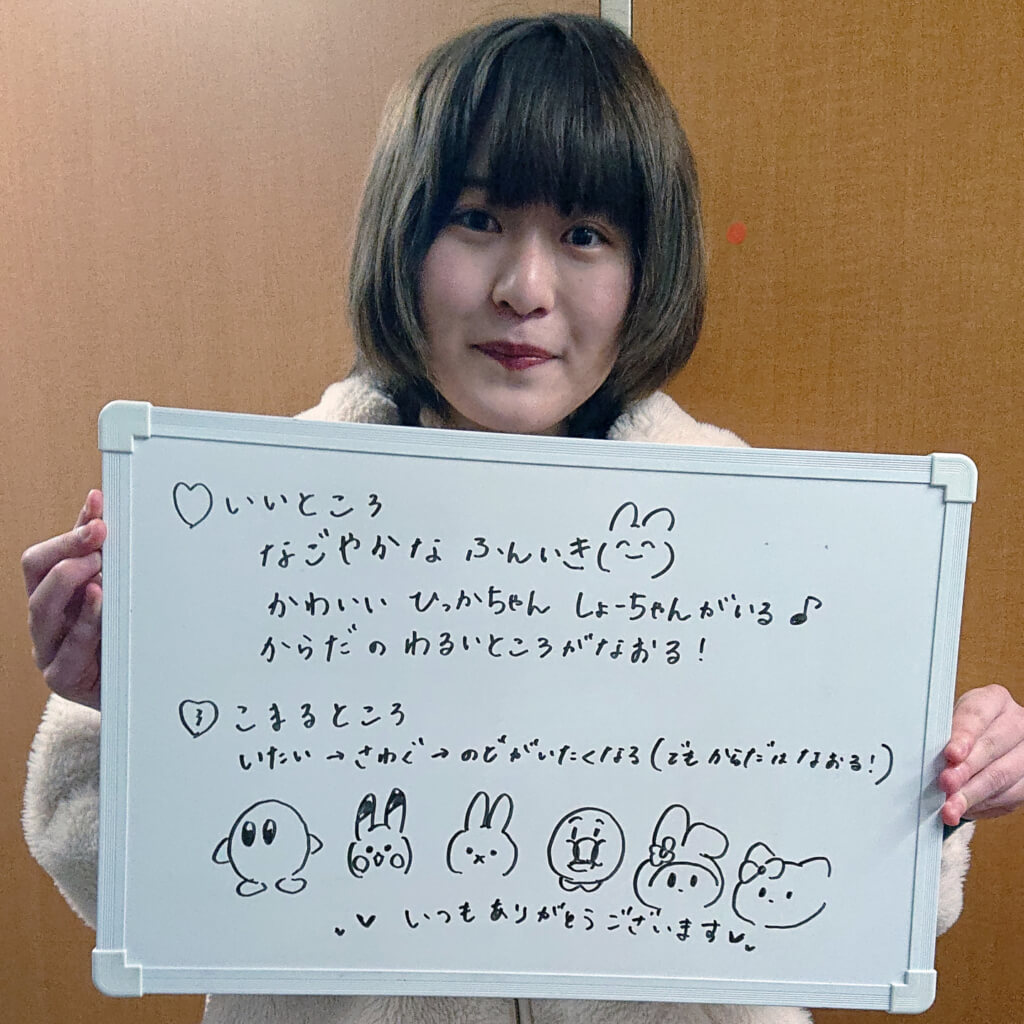 ♡いいところ
なごやかな ふんいき(^~^)
かわいい ひっかちゃん しょーちゃんがいる♪
からだの わるいところがなおる!
こまるところ
いたい→さわぐ→のどがいたくなる(でも からだはなおる!)
いつもありがとうございます♥